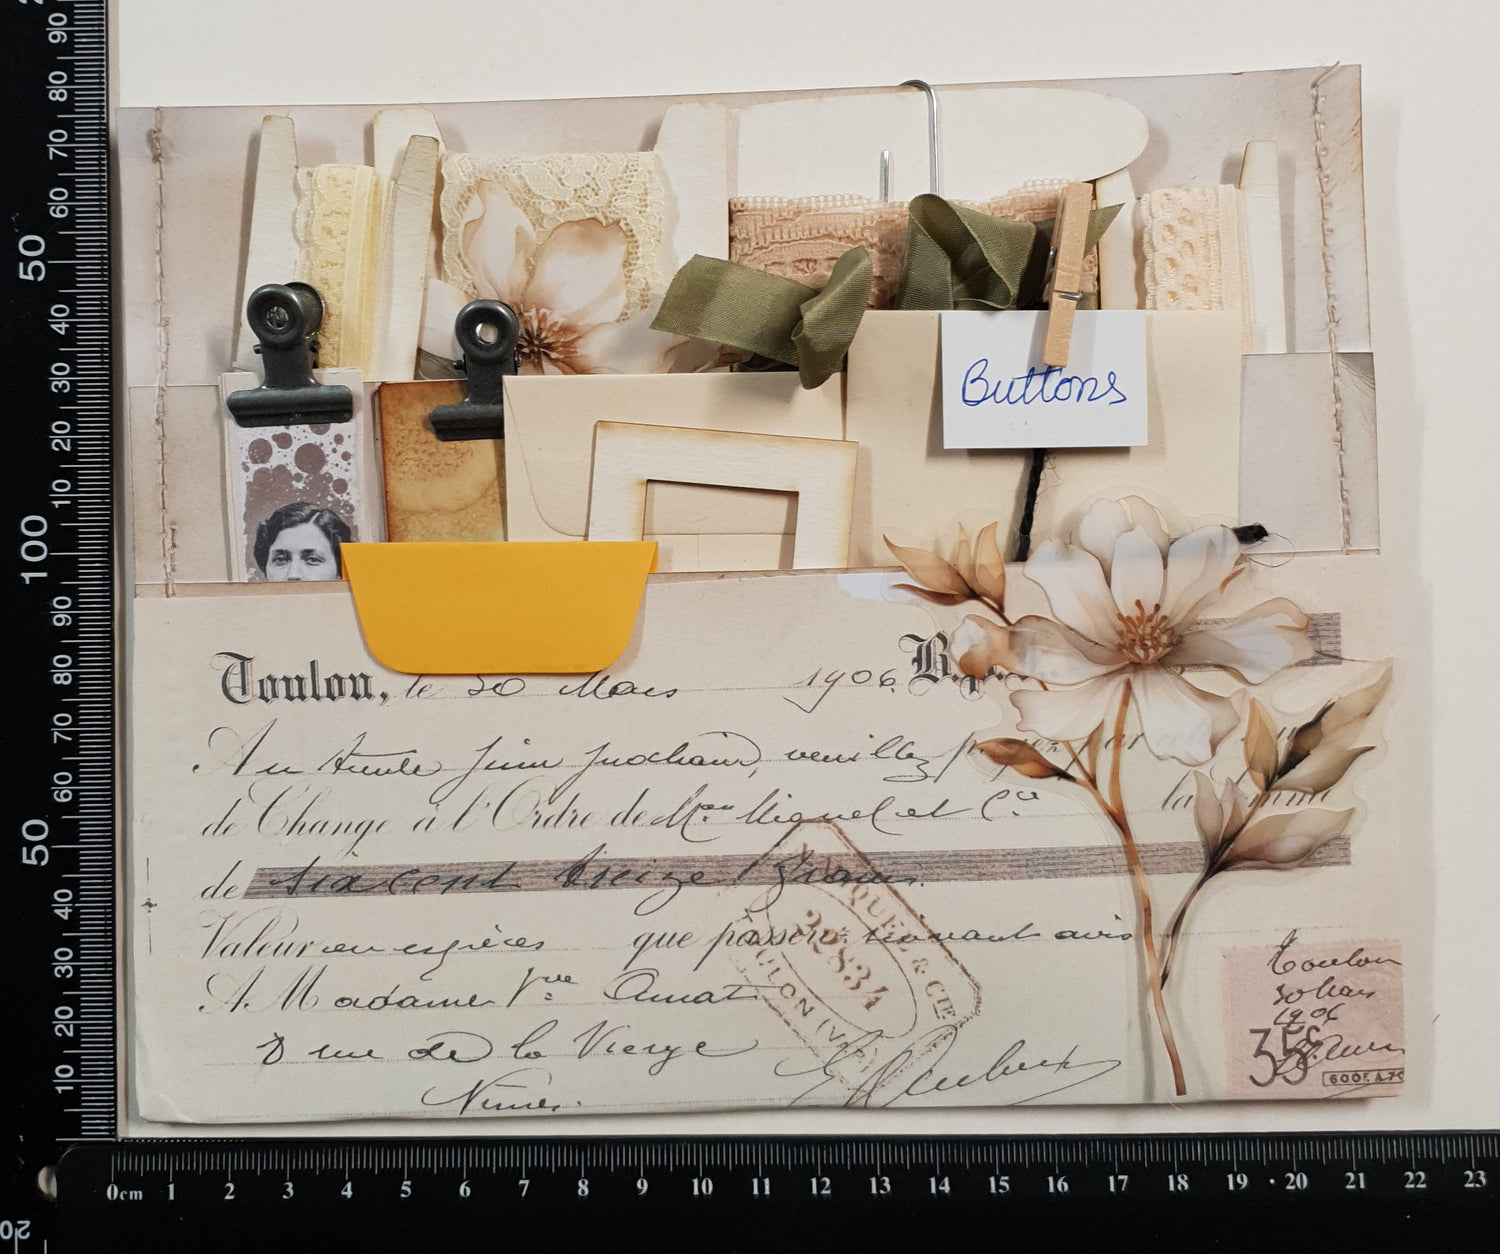 Buttons
Toulon, le 30 Mars 1906. B.
Au trente Juin prochain, veuillez payez par
de Change à l'Ordre de Miquel et Cie la somme
de six cent treize francs
Valeur en espèces que passerez suivant avis
A Madame Vve Amat
8 rue de la Vierge
Nimes.
MIQUEL & CIE
22834
TOULON (VAR)
Toulon
30 Mars
1906
35c
600F. A 70
0cm 1 2 3 4 5 6 7 8 9 10 11 12 13 14 15 16 17 18 19 20 21 22 23
90
80
70
60
50
40
30
20
10
100
90
80
70
60
50
40
30
20
10
20